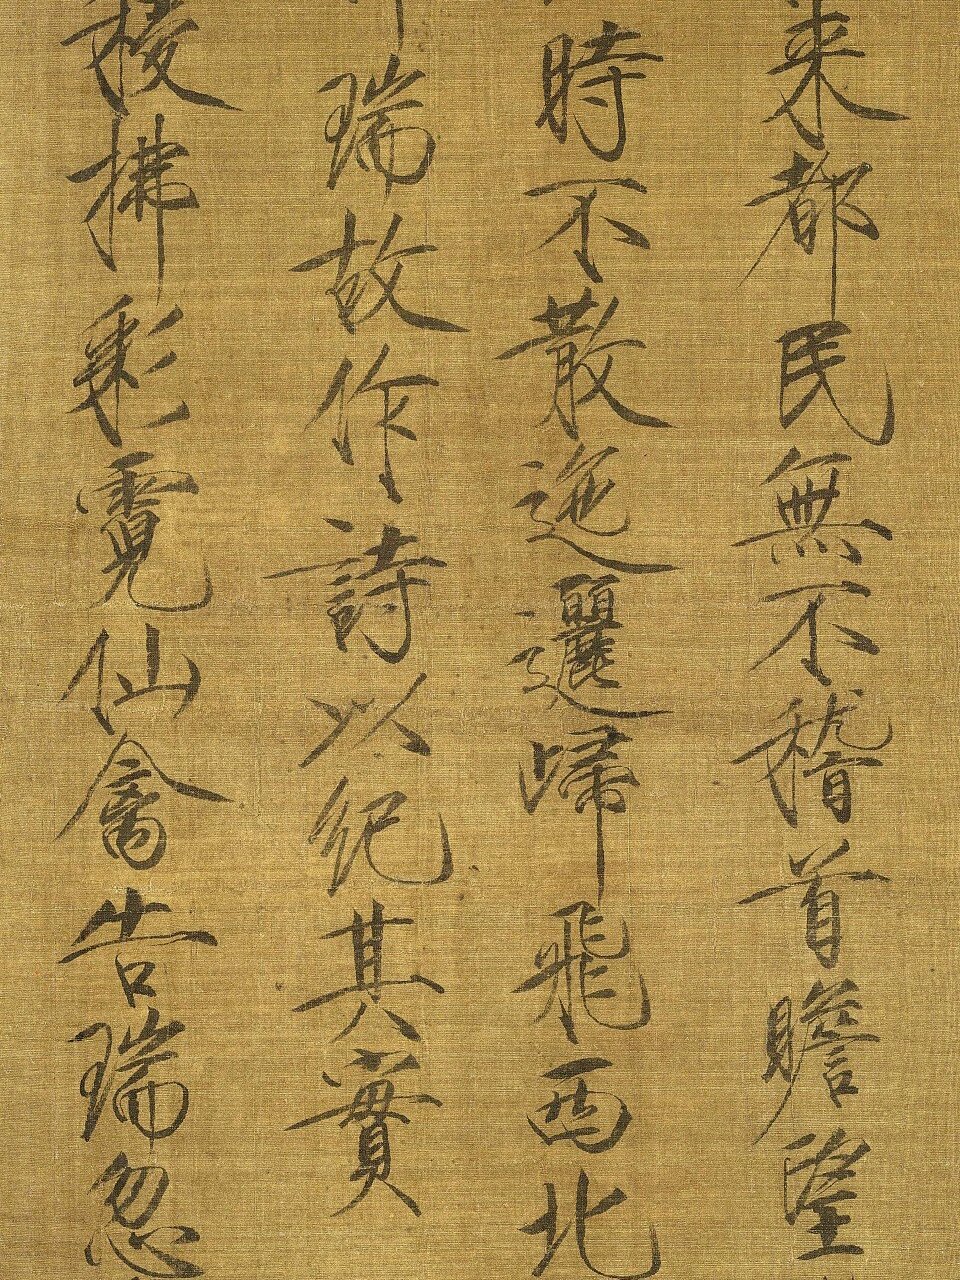 来都民無不稽首瞻望
時不散迤邐歸飛西北
瑞故作詩以紀其實
稜拂彩霓仙禽告瑞忽